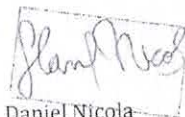 Daniel Nicola